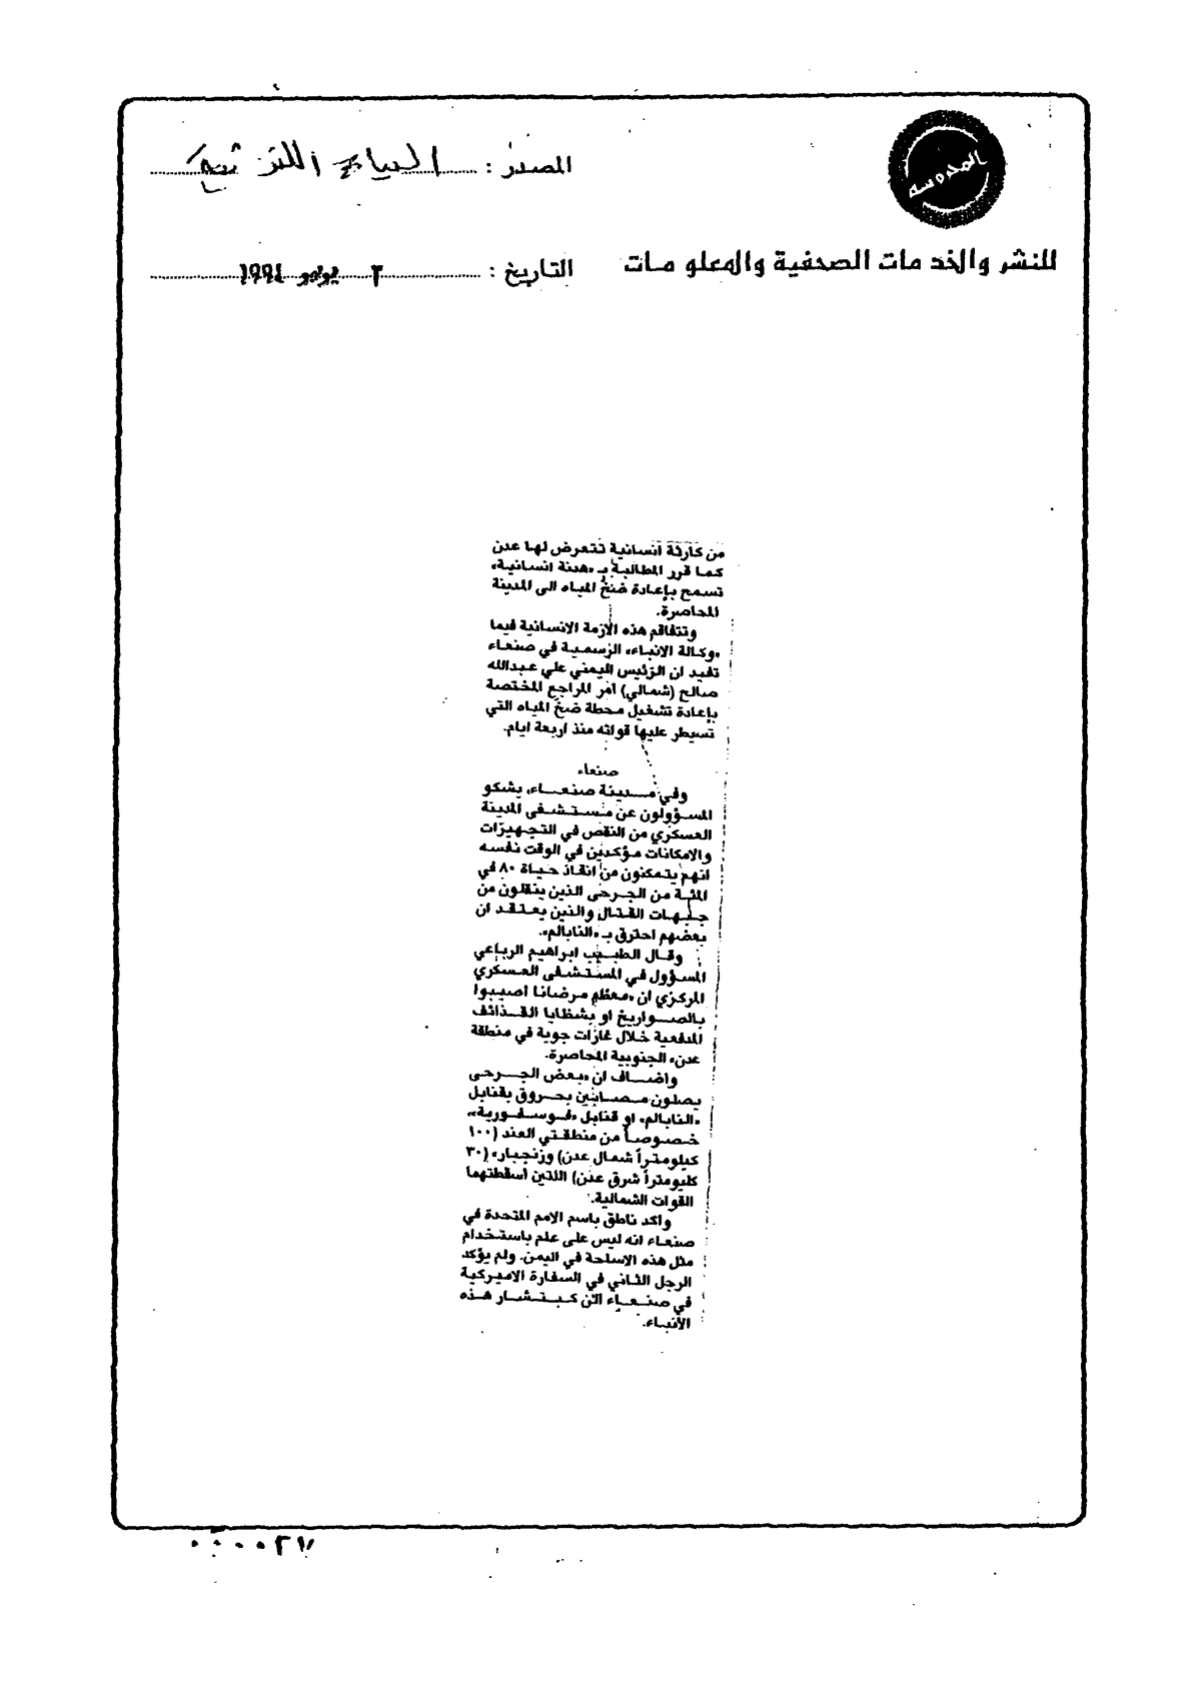 المحروسه
المصدر : الحياة اللندنية
للنشر والخدمات الصحفية والمعلومات
التاريخ : ٢ يونيو ١٩٩٤
من كارثة انسانية تتعرض لها عدن
كما قرر المطالبة بـ «هدنة انسانية»
تسمح بإعادة ضخ المياه الى المدينة
المحاصرة.
وتتفاقم هذه الأزمة الانسانية فيما
«وكالة الانباء» الرسمية في صنعاء
تفيد ان الرئيس اليمني علي عبدالله
صالح (شمالي) امر المراجع المختصة
بإعادة تشغيل محطة ضخ المياه التي
تسيطر عليها قواته منذ اربعة ايام.
صنعاء
وفي مدينة صنعاء، يشكو
المسؤولون عن مستشفى المدينة
العسكري من النقص في التجهيزات
والامكانات مؤكدين في الوقت نفسه
انهم يتمكنون من انقاذ حياة ٨٠ في
المئة من الجرحى الذين ينقلون من
جبهات القتال والذين يعتقد ان
بعضهم احترق بـ «النابالم».
وقال الطبيب ابراهيم الرباعي
المسؤول في المستشفى العسكري
المركزي ان «معظم مرضانا اصيبوا
بالصواريخ او بشظايا القذائف
المدفعية خلال غارات جوية في منطقة
عدن» الجنوبية المحاصرة.
واضاف ان «بعض الجرحى
يصلون مصابين بحروق بقنابل
«النابالم» او قنابل «فوسفورية»،
خصوصاً من منطقتي العند (١٠٠
كيلومتراً شمال عدن) وزنجبار» (٣٠
كليومتراً شرق عدن) اللتين اسقطتهما
القوات الشمالية.
واكد ناطق باسم الامم المتحدة في
صنعاء انه ليس على علم باستخدام
مثل هذه الاسلحة في اليمن. ولم يؤكد
الرجل الثاني في السفارة الاميركية
في صنعاء الن كبتشار هذه
الأنباء.